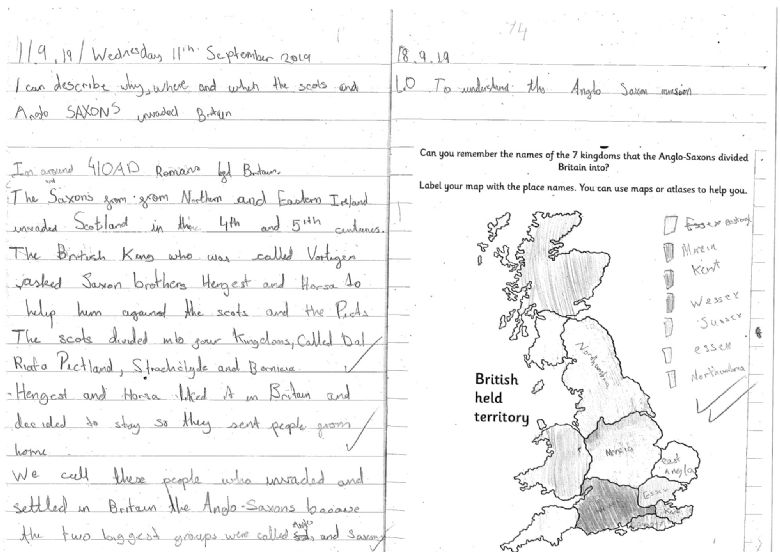 11.9.19 / Wednesday 11th September 2019
I can describe why, where and when the scots and
Anglo SAXONS invaded Britain
In around 410AD Romans left Britain.
The Saxons from from Northern and Eastern Ireland
invaded Scotland in the 4th and 5th centuries.
The British King who was called Vortigen
asked Saxon brothers Hengest and Horsa to
help him against the scots and the Picts
The scots divided into four Kingdoms, Called Dal
Riata Pictland, Strathclyde and Bernicia
Hengest and Horsa liked it in Britain and
decided to stay so they sent people from
home.
We call these people who invaded and
settled in Britain the Anglo-Saxons because
the two biggest groups were called Anglo and Saxons
14
18.9.19
L.O To understand the Anglo Saxon
Can you remember the names of the 7 kingdoms that the Anglo-Saxons divided
Britain into?
Label your map with the place names. You can use maps or atlases to help you.
Essex
Mercia
Kent
Wessex
Sussex
essex
Northumbria
British
held
territory
Northumbria
Mercia
east
Anglia
Essex